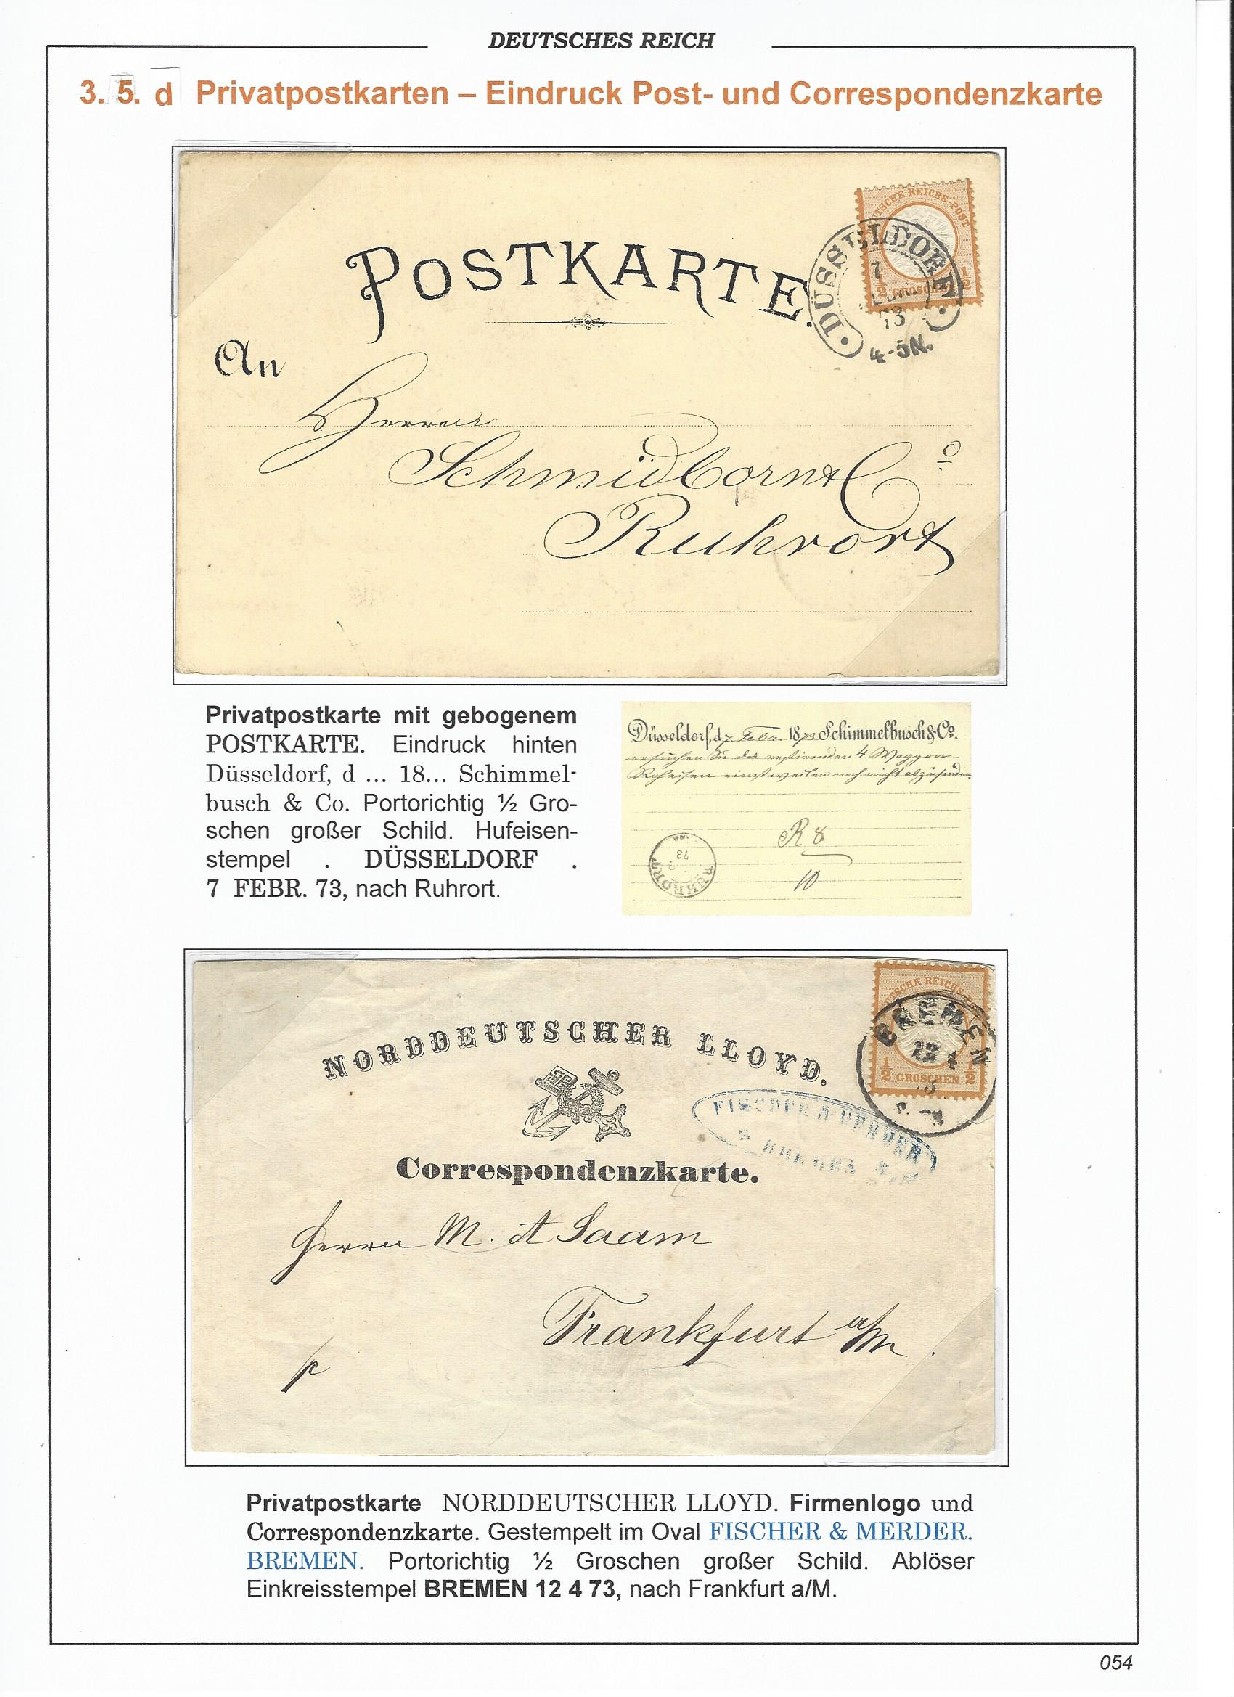 DEUTSCHES REICH
3. 5. d Privatpostkarten – Eindruck Post- und Correspondenzkarte
POSTKARTE.
DÜSSELDORF
7
73
4-5N.
An
Herren
Schmidborn & Co
Ruhrort
Privatpostkarte mit gebogenem
POSTKARTE. Eindruck hinten
Düsseldorf, d ... 18... Schimmel-
busch & Co. Portorichtig ½ Gro-
schen großer Schild. Hufeisen-
stempel . DÜSSELDORF .
7 FEBR. 73, nach Ruhrort.
Düsseldorf, d 7 Feb. 1873 Schimmelbusch & Co.
ersuchen Sie die restirenden 4 Waggon
Roheisen einstweilen noch nicht abzusenden
R 8
10
RUHRORT
NORDDEUTSCHER LLOYD.
BREMEN
12 4
½ GROSCHEN ½
FISCHER & MERDER
BREMEN
Correspondenzkarte.
Herrn M. A Saam
Frankfurt a/m
Privatpostkarte NORDDEUTSCHER LLOYD. Firmenlogo und
Correspondenzkarte. Gestempelt im Oval FISCHER & MERDER.
BREMEN. Portorichtig ½ Groschen großer Schild. Ablöser
Einkreisstempel BREMEN 12 4 73, nach Frankfurt a/M.
054